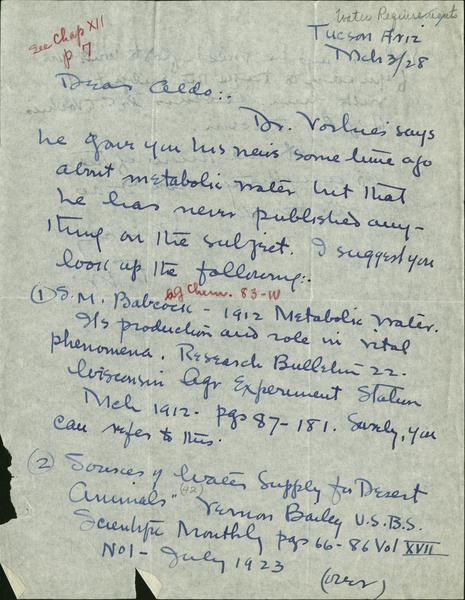 Water Requirements
See Chap XII
p 7
Tucson Ariz
Mch 3/28
Dear Aldo:-
Dr. Vorhies says
he gave you his news some time ago
about metabolic water but that
he has never published any-
thing on the subject. I suggest you
look up the following:-
Ag Chem. 83-W
(1) S. M. Babcock - 1912 Metabolic Water.
Its production and role in vital
phenomena. Research Bulletin 22-
Wisconsin Agr Experiment Station
Mch 1912- pgs 87-181. Surely, you
can refer to this.
(2) Sources of Water Supply for Desert
Animals" Vernon Bailey U.S.B.S.
Scientific Monthly pgs 66-86 Vol XVII
No 1- July 1923
(over)